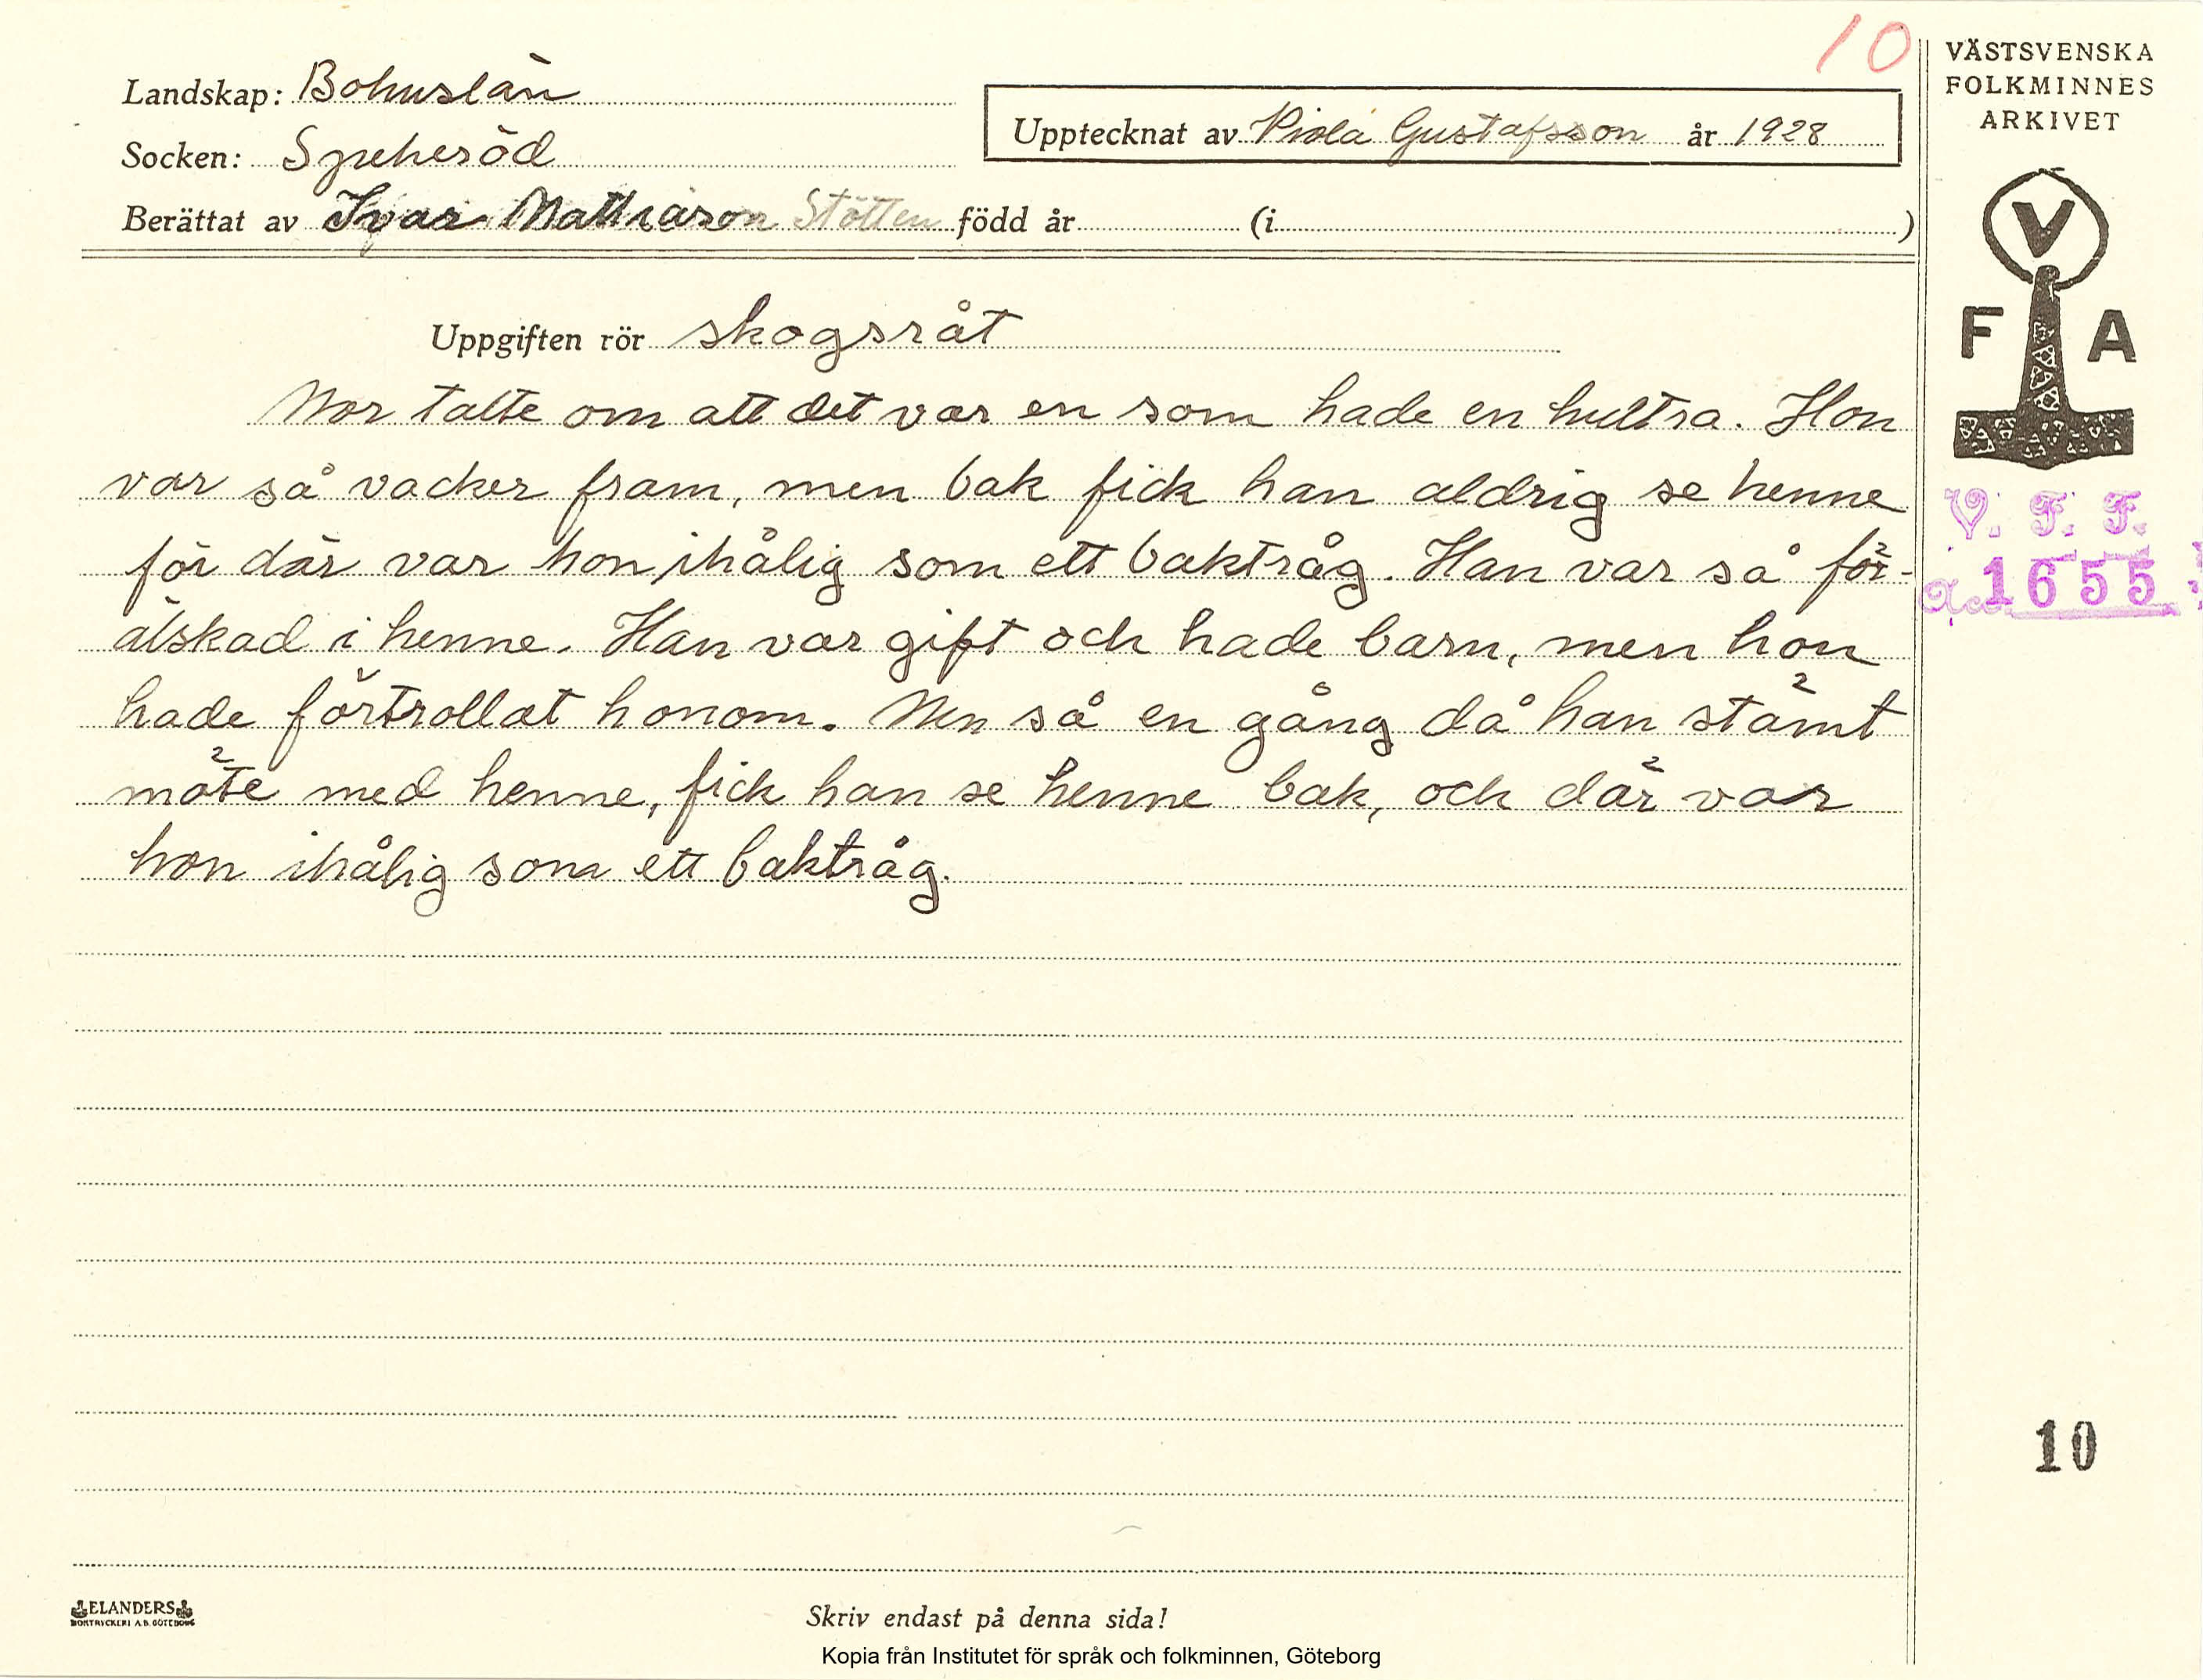 10
VÄSTSVENSKA
FOLKMINNES
ARKIVET
Landskap: Bohuslän
Upptecknat av Viola Gustafsson år 1928
Socken: Spekeröd
Berättat av Ivar Mathiason Stötten född år (i )
V
F A
Uppgiften rör skogsråt
Mor talte om att det var en som hade en hultra. Hon
var så vacker fram, men bak fick han aldrig se henne
för där var hon ihålig som ett baktråg. Han var så för-
älskad i henne. Han var gift och hade barn, men hon
hade förtrollat honom. Men så en gång då han stämt
möte med henne, fick han se henne bak, och där var
hon ihålig som ett baktråg.
V. F. F.
Acc. 1655
10
ELANDERS
BOKTRYCKERI A.B. GÖTEBORG
Skriv endast på denna sida!
Kopia från Institutet för språk och folkminnen, Göteborg